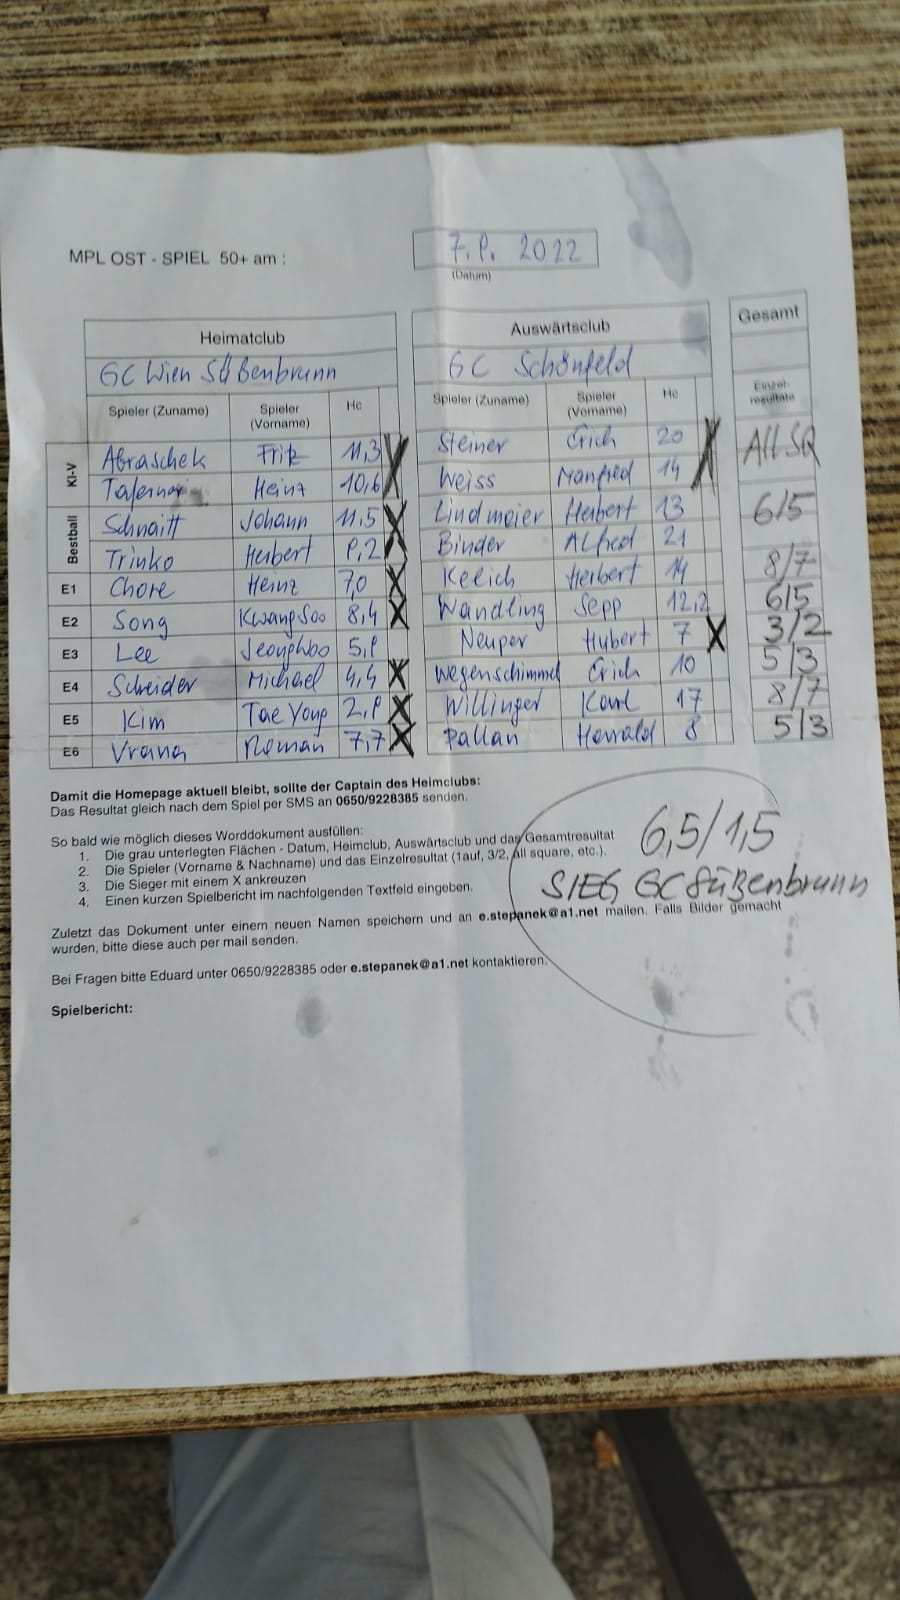 MPL OST - SPIEL 50+ am :
7.8. 2022
(Datum)
Heimatclub Auswärtsclub Gesamt
GC Wien Süßenbrunn GC Schönfeld
Spieler (Zuname) Spieler (Vorname) Hc Spieler (Zuname) Spieler (Vorname) Hc Einzel-resultate
Kl-V Abraschek Fritz 11,3 X Steiner Erich 20 X All SQ
Heinz 10,6 Weiss Manfred 14
Bestball Schnaitt Johann 11,5 X Lindmeier Herbert 13 6/5
Trinko Herbert 8,2 Binder Alfred 21
E1 Chore Heinz 7,0 X Kelich Herbert 14 8/7
E2 Song KwangSoo 8,4 X Wandling Sepp 12,2 6/5
E3 Lee 5,8 Neuper Hubert 7 X 3/2
E4 Schneider Michael 4,4 X Wegenschimmel Erich 10 5/3
E5 Kim Tae Young 2,8 X Willinger Karl 17 8/7
E6 Vrana Roman 7,7 X Pallan Harrald 8 5/3
Damit die Homepage aktuell bleibt, sollte der Captain des Heimclubs:
Das Resultat gleich nach dem Spiel per SMS an 0650/9228385 senden.
So bald wie möglich dieses Worddokument ausfüllen:
1. Die grau unterlegten Flächen - Datum, Heimclub, Auswärtsclub und das Gesamtresultat
2. Die Spieler (Vorname & Nachname) und das Einzelresultat (1auf, 3/2, all square, etc.).
3. Die Sieger mit einem X ankreuzen
4. Einen kurzen Spielbericht im nachfolgenden Textfeld eingeben.
6,5/1,5
SIEG GC Süßenbrunn
Zuletzt das Dokument unter einem neuen Namen speichern und an e.stepanek@a1.net mailen. Falls Bilder gemacht
wurden, bitte diese auch per mail senden.
Bei Fragen bitte Eduard unter 0650/9228385 oder e.stepanek@a1.net kontaktieren.
Spielbericht: